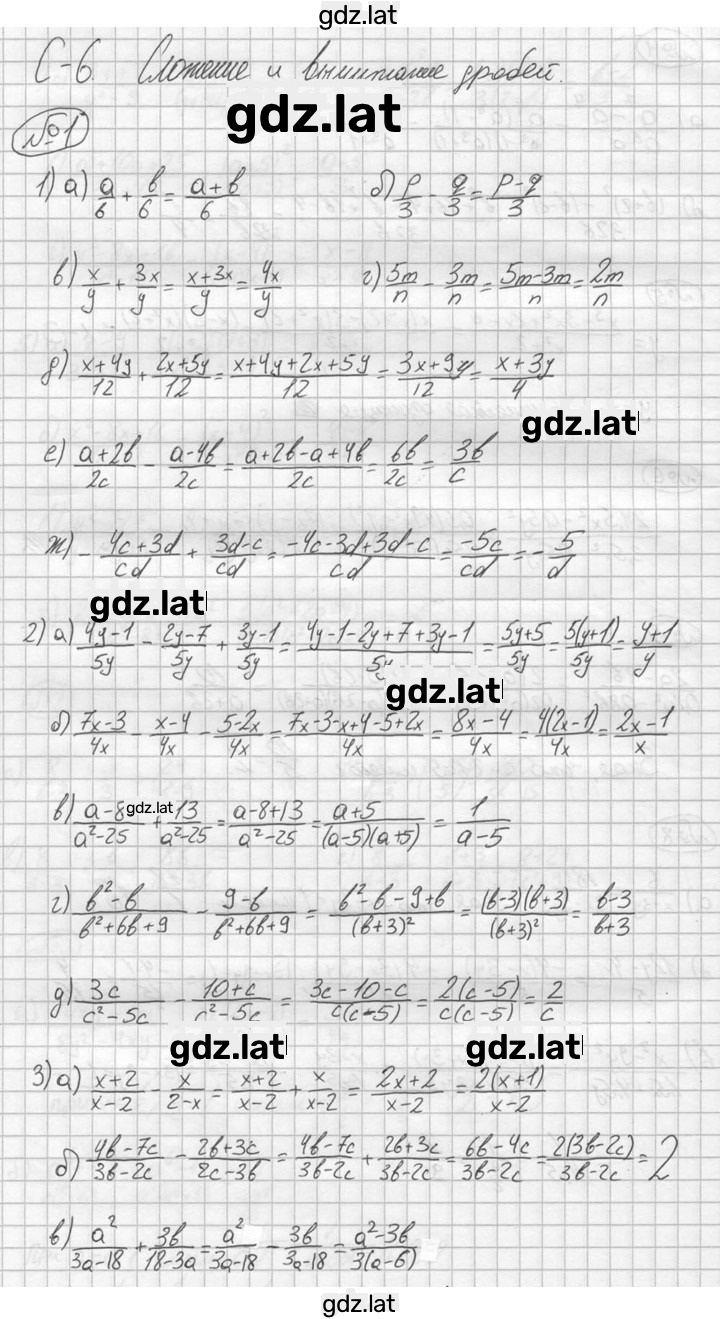 gdz.lat
С-6. Сложение и вычитание дробей.
gdz.lat
№1
1) а) a/6 + b/6 = (a+b)/6 б) p/3 - q/3 = (p-q)/3
в) x/y + 3x/y = (x+3x)/y = 4x/y г) 5m/n - 3m/n = (5m-3m)/n = 2m/n
д) (x+4y)/12 + (2x+5y)/12 = (x+4y+2x+5y)/12 = (3x+9y)/12 = (x+3y)/4
gdz.lat
е) (a+2b)/2c - (a-4b)/2c = (a+2b-a+4b)/2c = 6b/2c = 3b/c
ж) - (4c+3d)/cd + (3d-c)/cd = (-4c-3d+3d-c)/cd = -5c/cd = - 5/d
gdz.lat
2) а) (4y-1)/5y - (2y-7)/5y + (3y-1)/5y = (4y-1-2y+7+3y-1)/5y = (5y+5)/5y = 5(y+1)/5y = (y+1)/y
gdz.lat
б) (7x-3)/4x - (x-4)/4x - (5-2x)/4x = (7x-3-x+4-5+2x)/4x = (8x-4)/4x = 4(2x-1)/4x = (2x-1)/x
в) (a-8)/(a²-25) + 13/(a²-25) = (a-8+13)/(a²-25) = (a+5)/((a-5)(a+5)) = 1/(a-5)
gdz.lat
г) (b²-b)/(b²+6b+9) - (9-b)/(b²+6b+9) = (b²-b-9+b)/(b+3)² = (b-3)(b+3)/(b+3)² = (b-3)/(b+3)
д) 3c/(c²-5c) - (10+c)/(c²-5c) = (3c-10-c)/(c(c-5)) = 2(c-5)/(c(c-5)) = 2/c
gdz.lat gdz.lat
3) а) (x+2)/(x-2) - x/(2-x) = (x+2)/(x-2) + x/(x-2) = (2x+2)/(x-2) = 2(x+1)/(x-2)
б) (4b-7c)/(3b-2c) - (2b+3c)/(2c-3b) = (4b-7c)/(3b-2c) + (2b+3c)/(3b-2c) = (6b-4c)/(3b-2c) = 2(3b-2c)/(3b-2c) = 2
в) a²/(3a-18) + 3b/(18-3a) = a²/(3a-18) - 3b/(3a-18) = (a²-3b)/(3(a-6))
gdz.lat